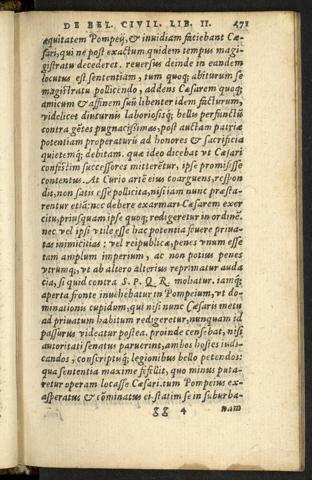 DE BEL. CIVIL. LIB. II. 471
æquitatem Pompeij, & inuidiam faciebant Cæ-
sari, qui ne post exactum quidem tempus magi-
stratu decederet. reuersus deinde in eandem
locutus est sententiam, tum quoq; abiturum se
magistratu pollicendo, addens Cæsarem quoq;
amicum & affinem suũ libenter idem facturum,
videlicet diuturnis laboriosisq; bellis perfunctũ
contra gẽtes pugnacissimas, post auctam patriæ
potentiam properaturũ ad honores & sacrificia
quietemq; debitam. quæ ideo dicebat vt Cæsari
confestim successores mitterẽtur, ipse promisisse
contentus. At Curio artẽ eius coarguens, respon
dit, non satis esse pollicita, nisi iam nunc præsta-
rentur etiã: nec debere exarmari Cæsarem exer
citu, priusquam ipse quoq; redigeretur in ordinẽ.
nec vel ipsi vtile esse hac potentia fouere priua-
tas inimicitias: vel reipublicæ, penes vnum esse
tam amplum imperium, ac non potius penes
vtrunq;, vt ab altero alterius reprimatur auda
cia, si quid contra S. P. Q. R. moliatur. iamq;
aperta fronte inuehebatur in Pompeium, vt do-
minationis cupidum, qui nisi nunc Cæsaris metu
ad priuatum habitum redigeretur, nunquam id
passurus videatur postea. proinde censebat, nisi
autoritati senatus paruerint, ambos hostes iudi-
candos, conscriptuq; legionibus bello petendos:
qua sententia maxime fefellit, quo minus puta-
retur operam locasse Cæsari. tum Pompeius ex-
asperatus & cõminatus ei statim se in suburba-
gg 4 nam